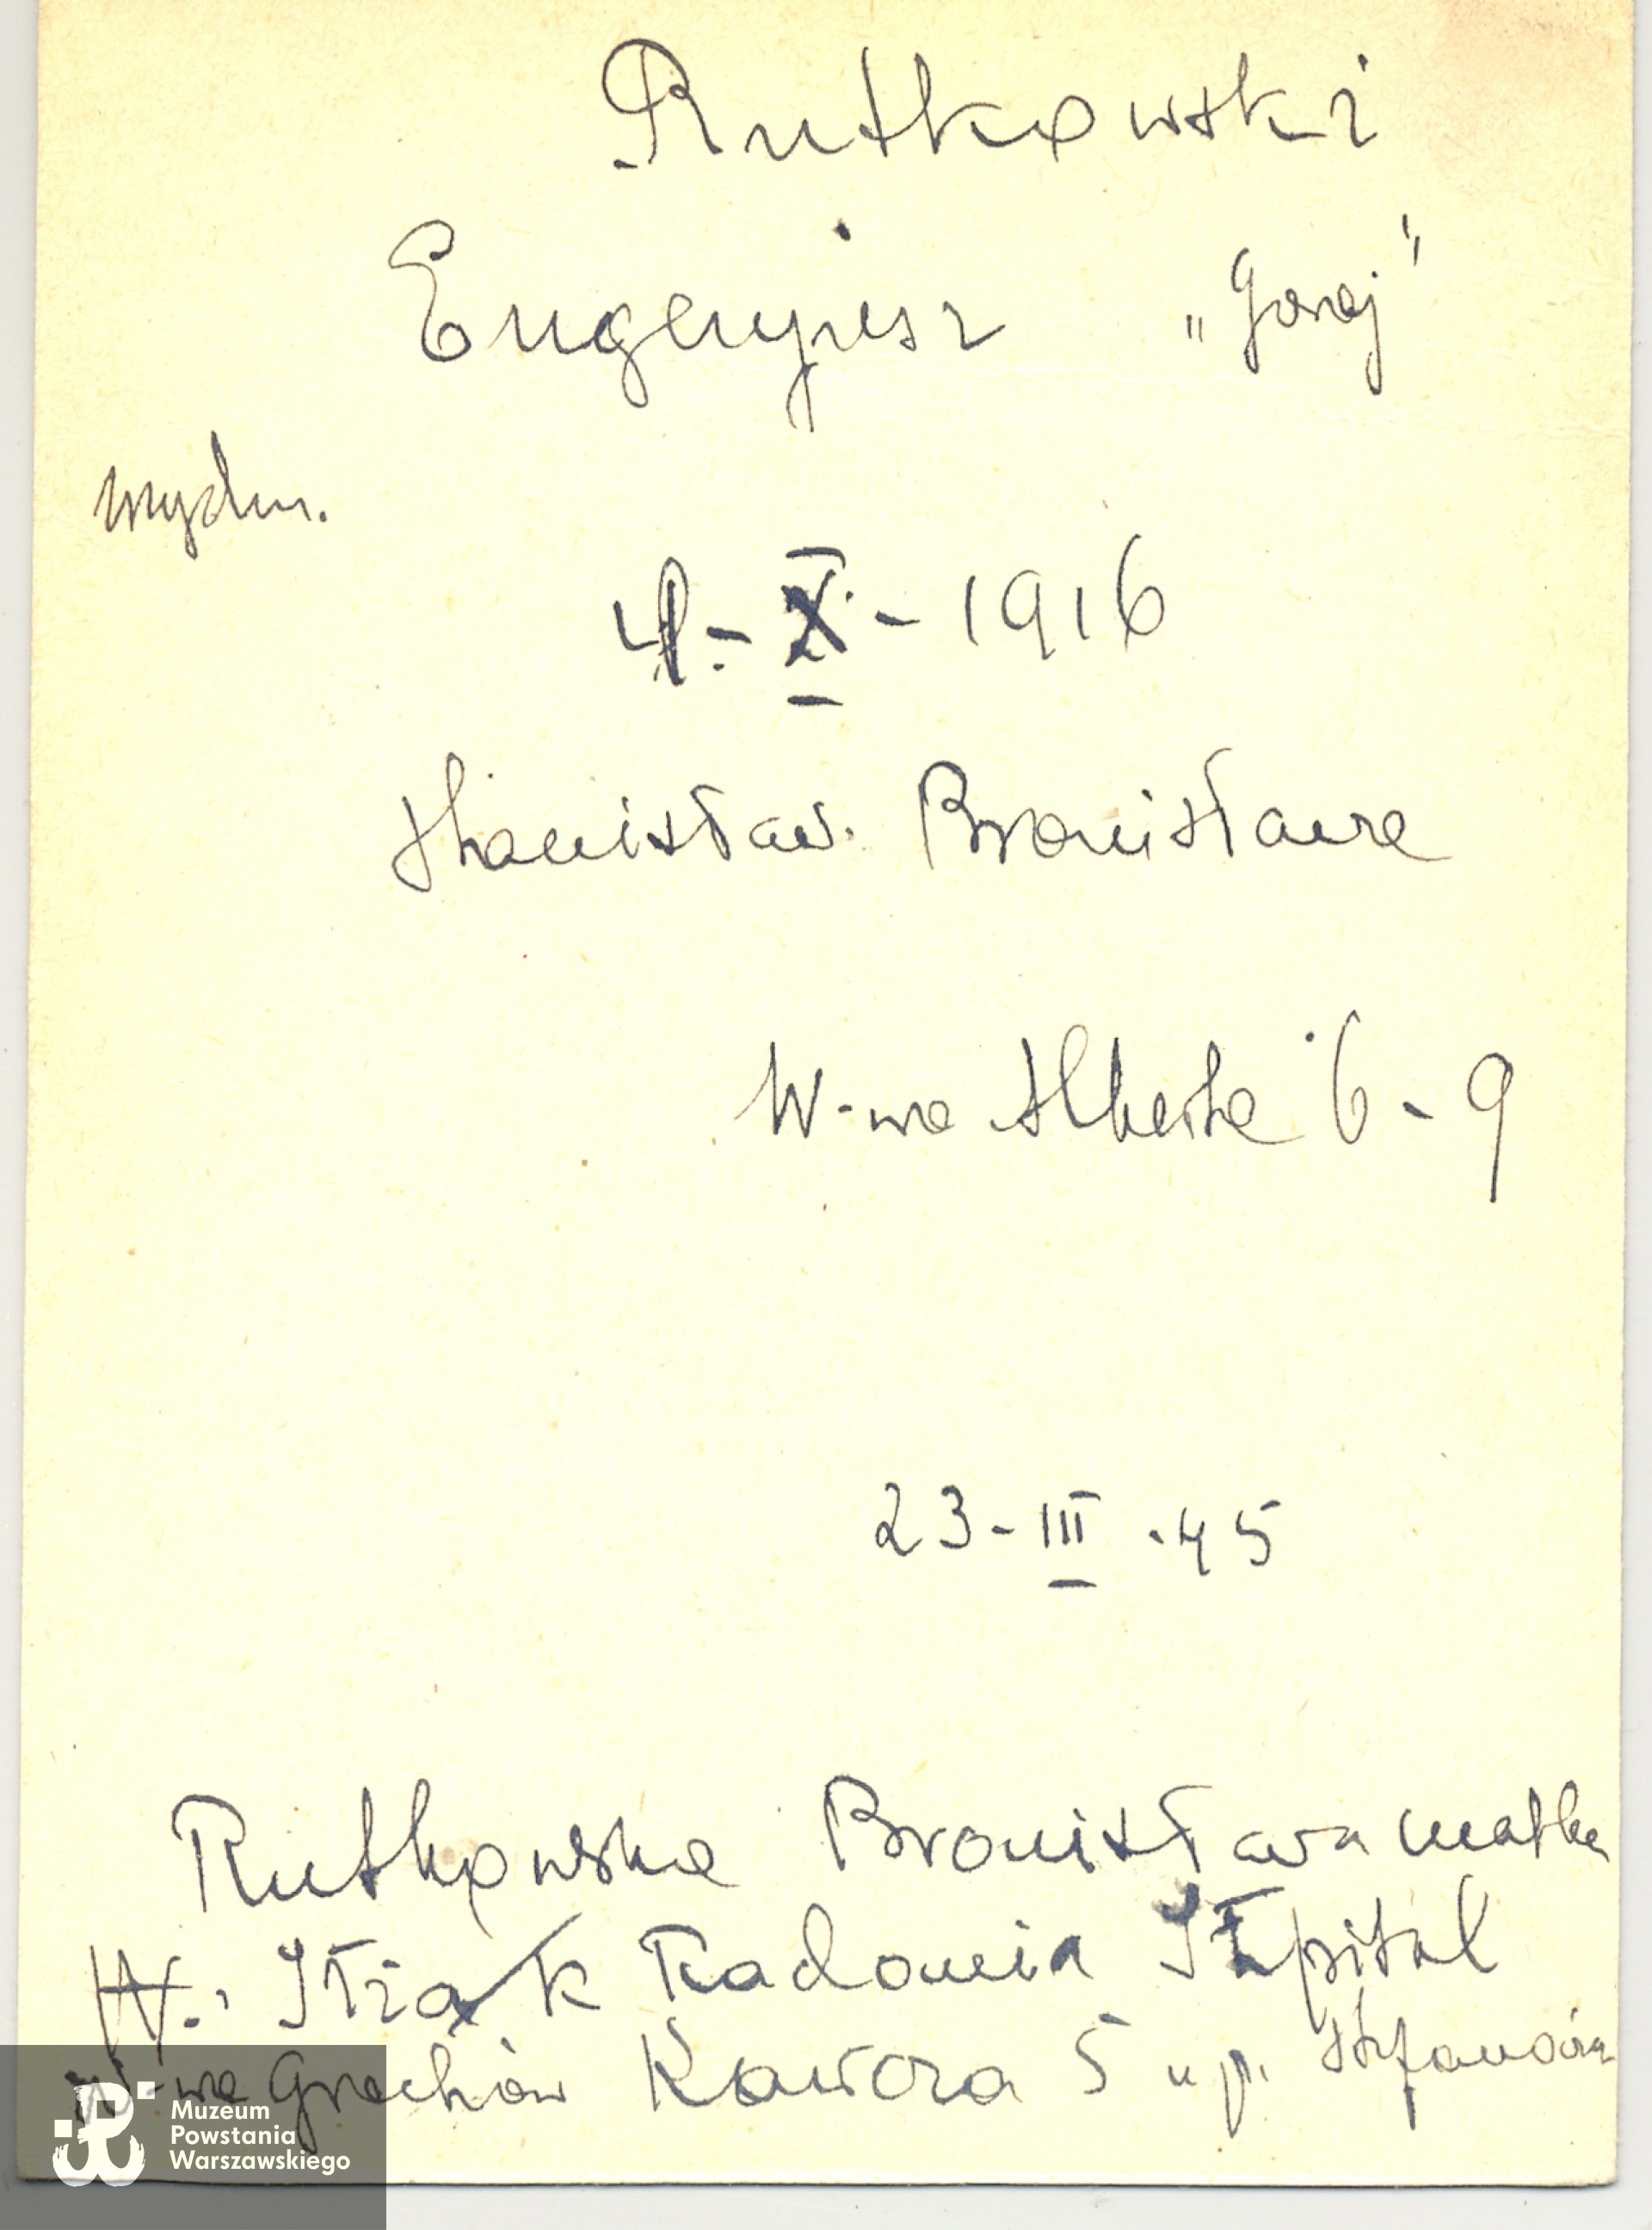 Rutkowski
Eugenjusz „Goraj"
4.-X.-1916
Stanisław. Bronisława
W-wa Alberta 6-9
23-III.45
Rutkowska Bronisława matka
Iłża k Radomia Szpital
W-wa Grochów Kawcza 5 u p. Stefanowicz
Muzeum
Powstania
Warszawskiego